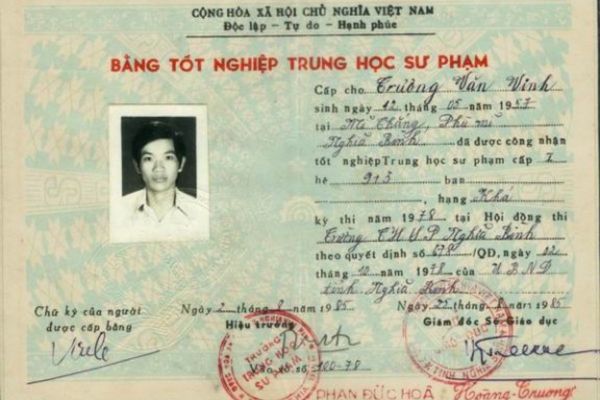 CỘNG HÒA XÃ HỘI CHỦ NGHĨA VIỆT NAM
Độc lập - Tự do - Hạnh phúc
BẰNG TỐT NGHIỆP TRUNG HỌC SƯ PHẠM
Cấp cho Trương Văn Vinh
sinh ngày 12 tháng 05 năm 1957
tại Mĩ Thắng, Phù mĩ
Nghĩa Bình đã được công nhận
tốt nghiệp Trung học sư phạm cấp I
hệ 9+3 ban
hạng Khá
kỳ thi năm 1978 tại Hội đồng thi
Trường THSP Nghĩa Bình
theo quyết định số 678 /QĐ, ngày 02
tháng 10 năm 1978 của UBND
tỉnh Nghĩa Bình
Chữ ký của người
được cấp bằng
Ngày 2 tháng 8 năm 1985
Hiệu trưởng
TRƯỜNG
TRUNG HỌC
SƯ PHẠM
Vào sổ số 100-78
Ngày 22 tháng 8 năm 1985
Giám đốc Sở Giáo dục
PHAN ĐỨC HOÁ
Hoàng-Trương